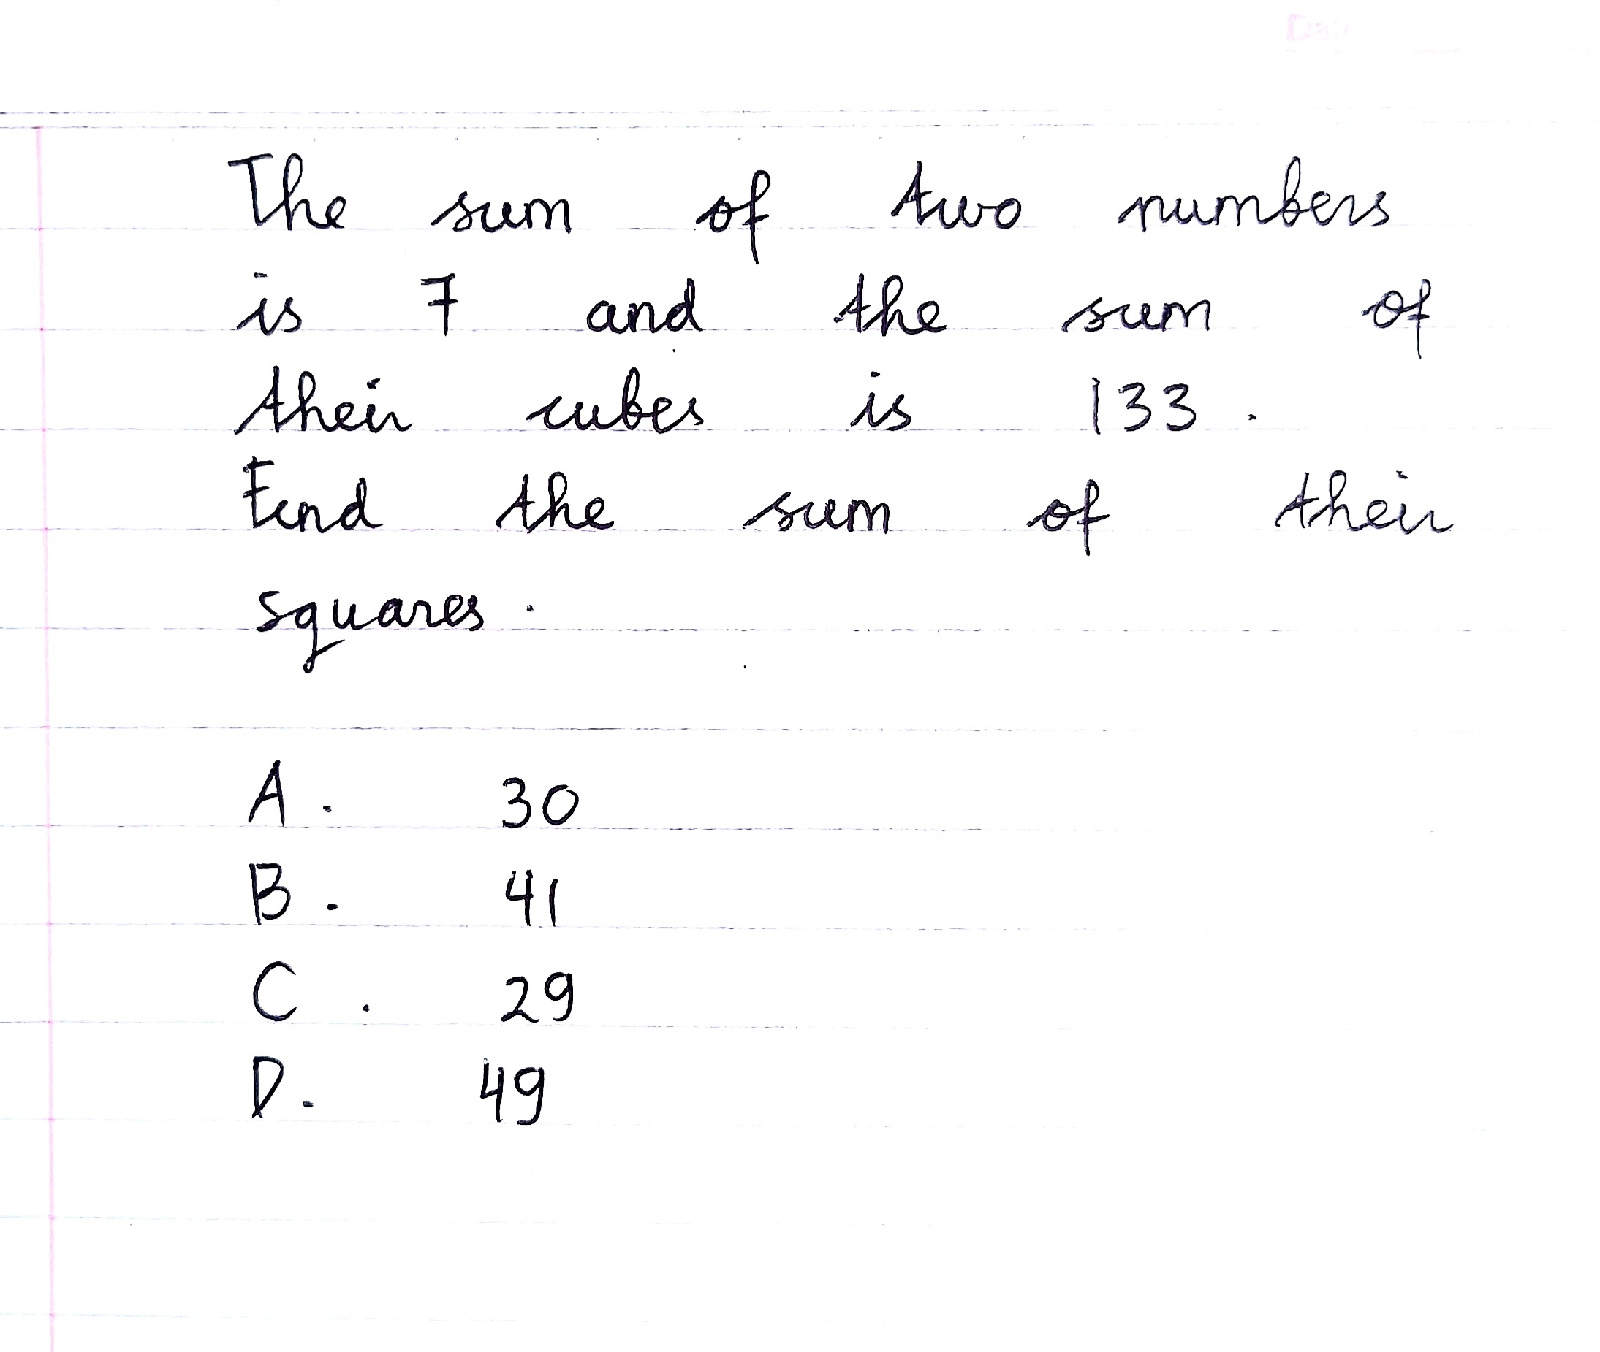 The sum of two numbers
is 7 and the sum of
their cubes is 133.
Find the sum of their
squares.
A. 30
B. 41
C. 29
D. 49